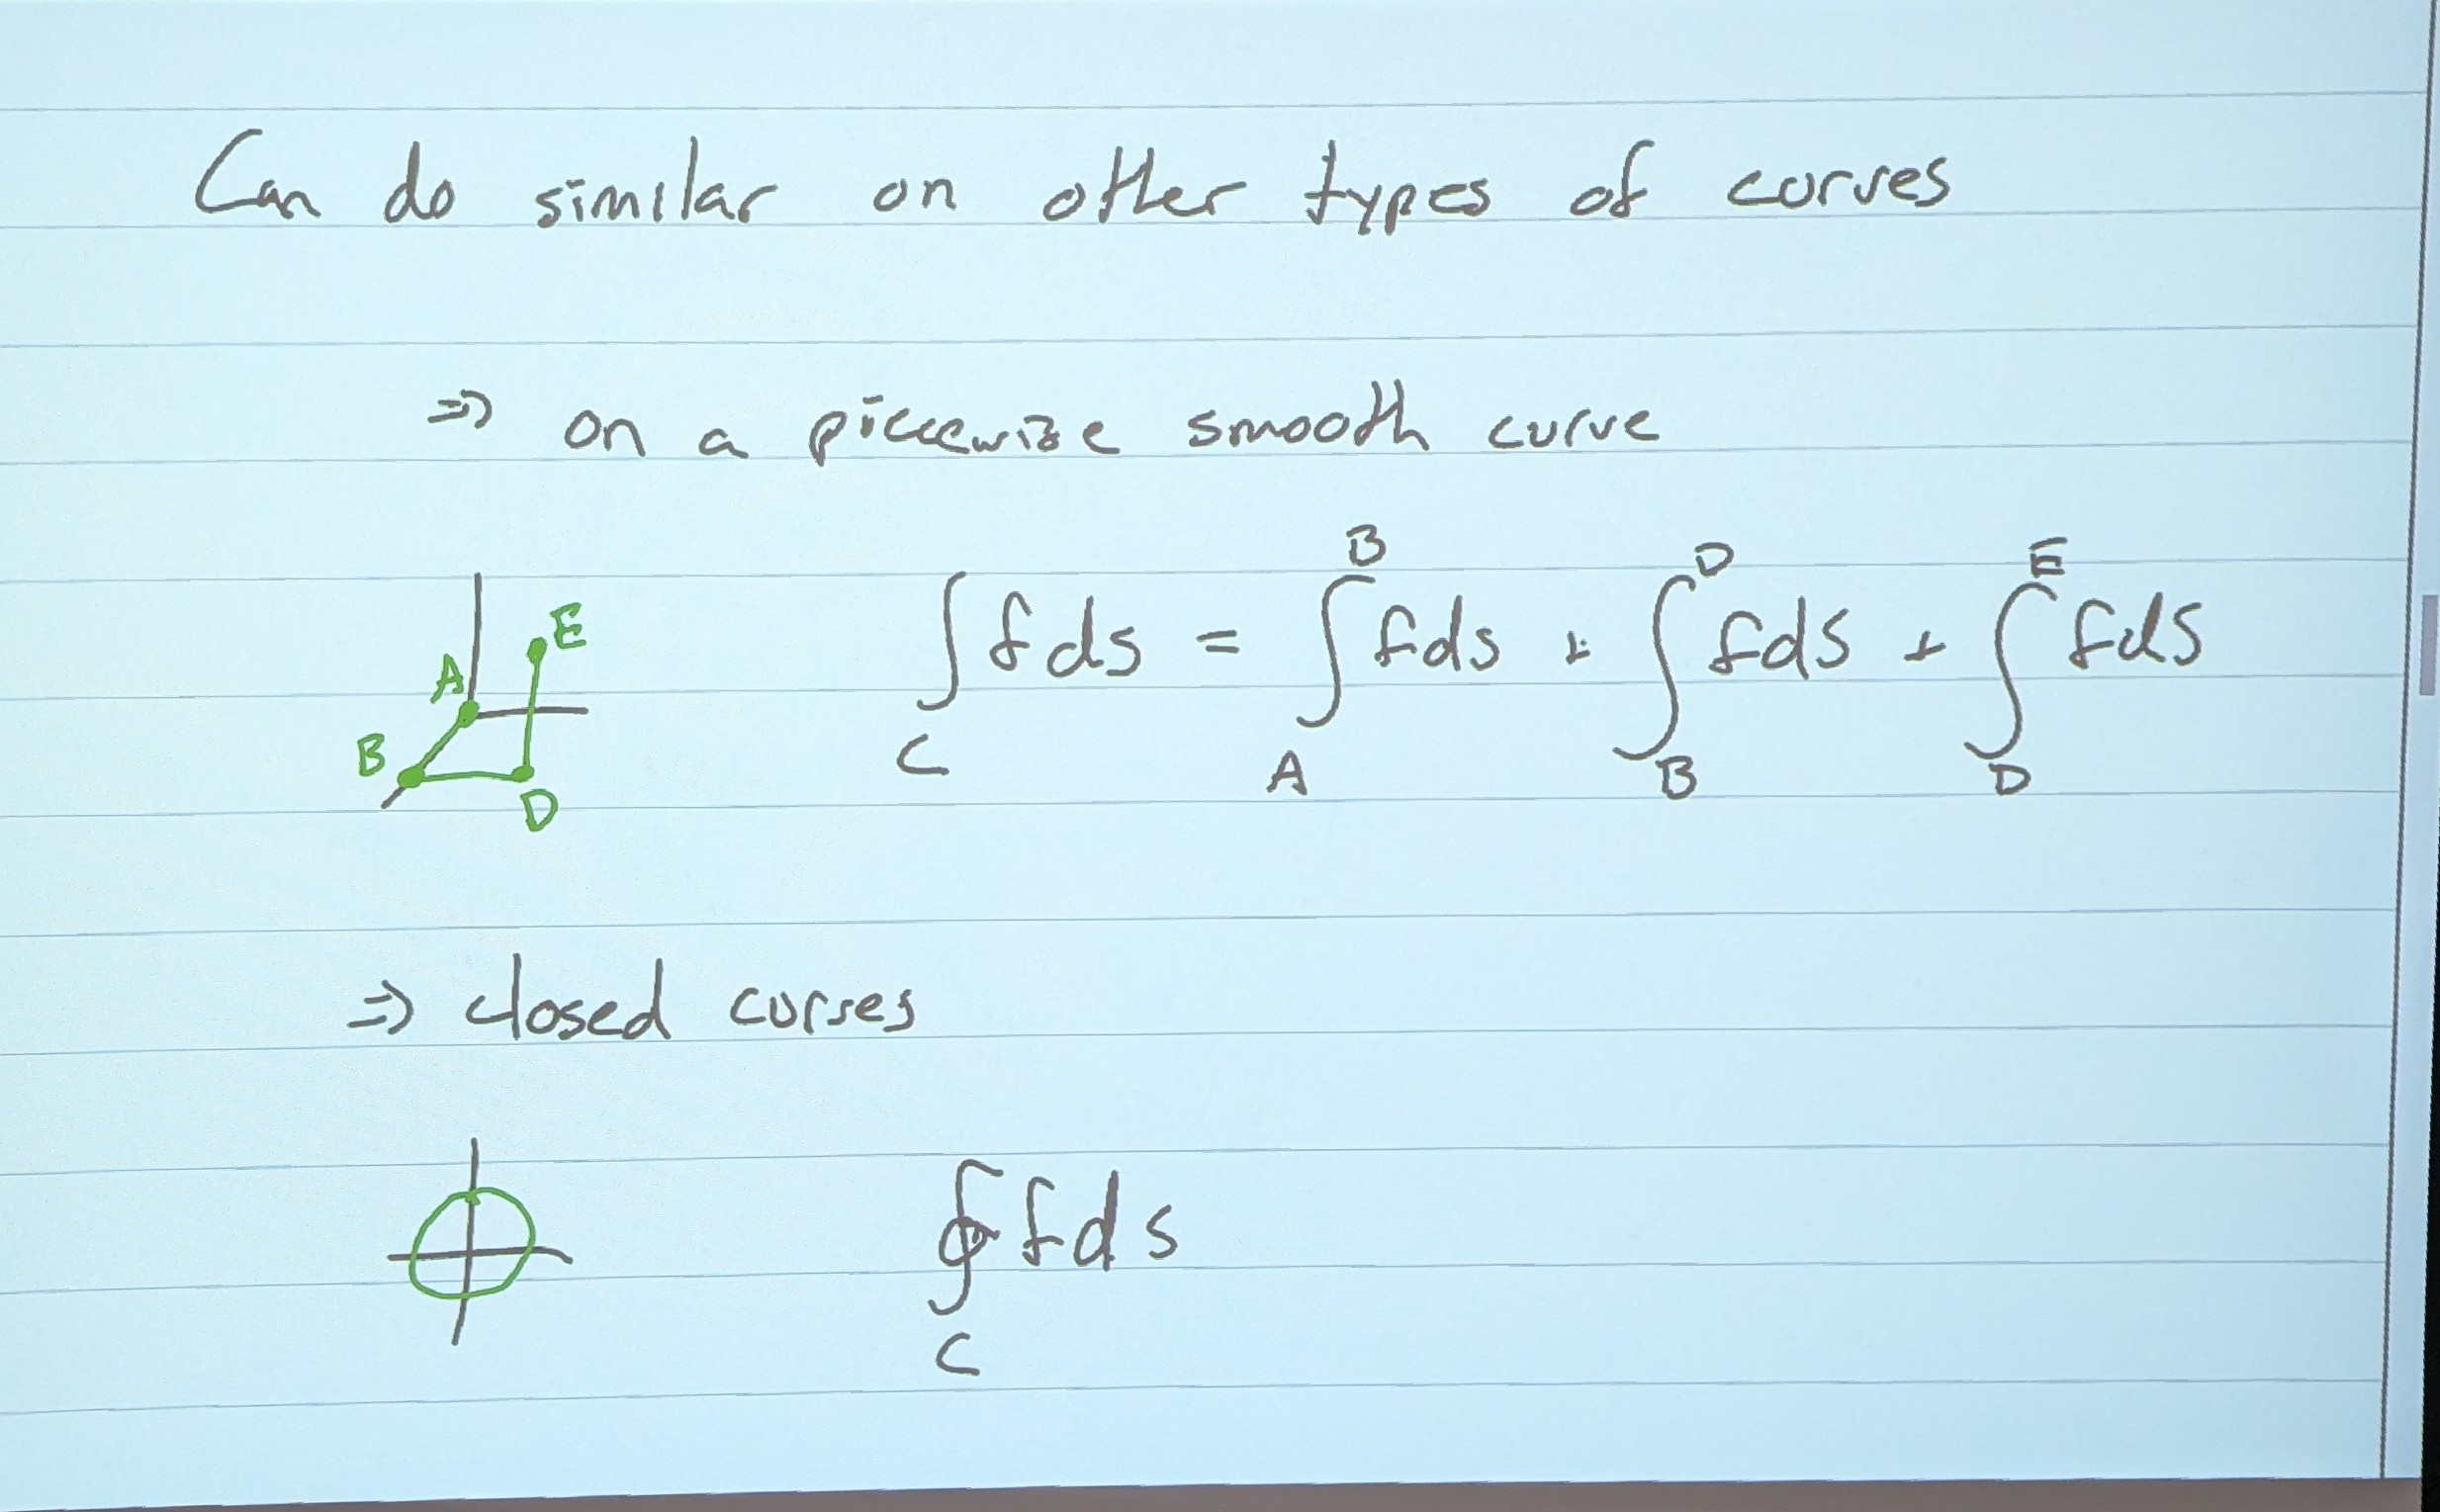 Can do similar on other types of curves
⇒ on a piecewise smooth curve
A
E
B
D
∫_C f ds = ∫_A^B f ds + ∫_B^D f ds + ∫_D^E f ds
⇒ closed curves
∮_C f ds